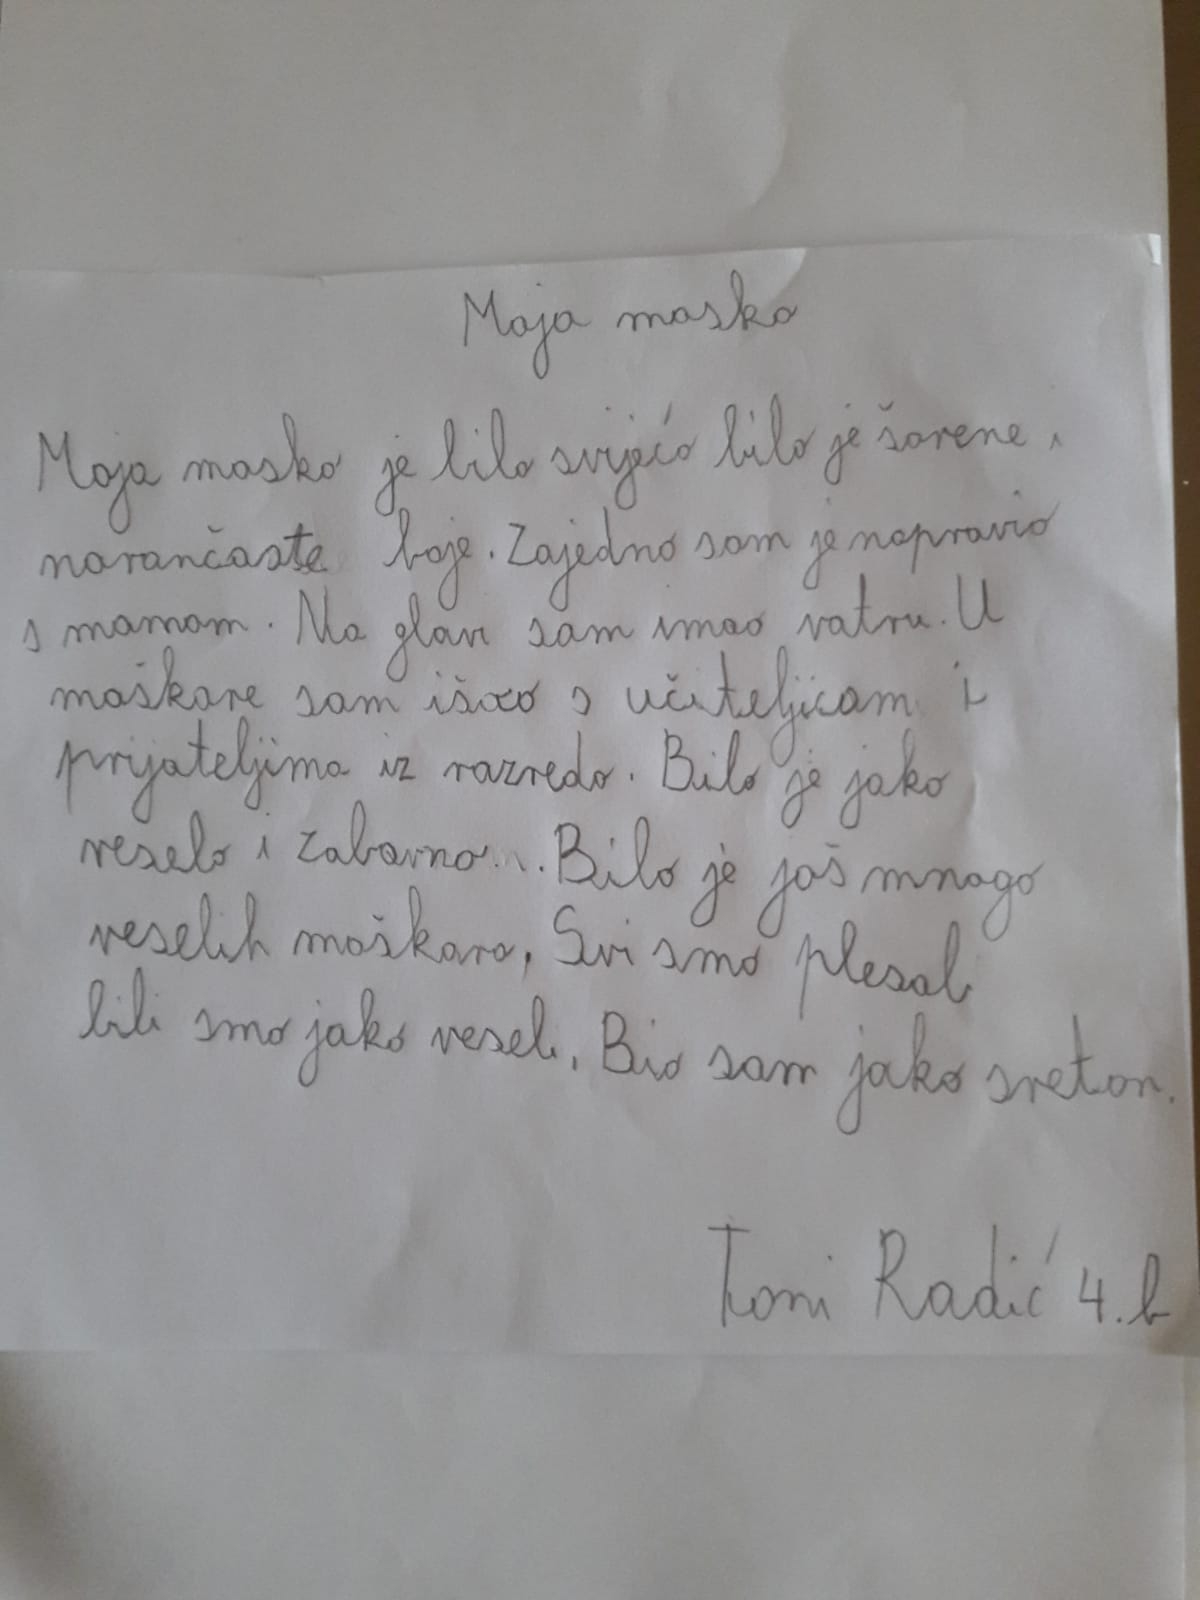 Moja maska
Moja maska je bila svijeća bila je šarene i
narančaste boje. Zajedno sam je napravio
s mamom. Na glavi sam imao vatru. U
maškare sam išao s učiteljicam i
prijateljima iz razreda. Bilo je jako
veselo i zabavno... Bilo je još mnogo
veselih maškara, Svi smo plesali
bili smo jako veseli. Bio sam jako sretan.
Toni Radić 4. b